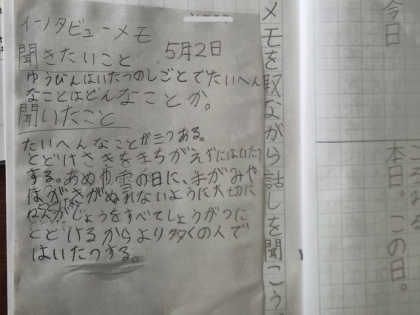 インタビューメモ
聞きたいこと 5月2日
ゆうびんはいたつのしごとでたいへん
なことはどんなことか。
聞いたこと
たいへんなことが三つある。
とどけさきをまちがえずにはいたつ
する。あめや雪の日に、手がみや
はがきがぬれないように大切に
ねんがじょうをすべてしょうがつに
とどけるからより多くの人で
はいたつする。
メモを取ながら話しを聞こう。
今日
本日。この日。